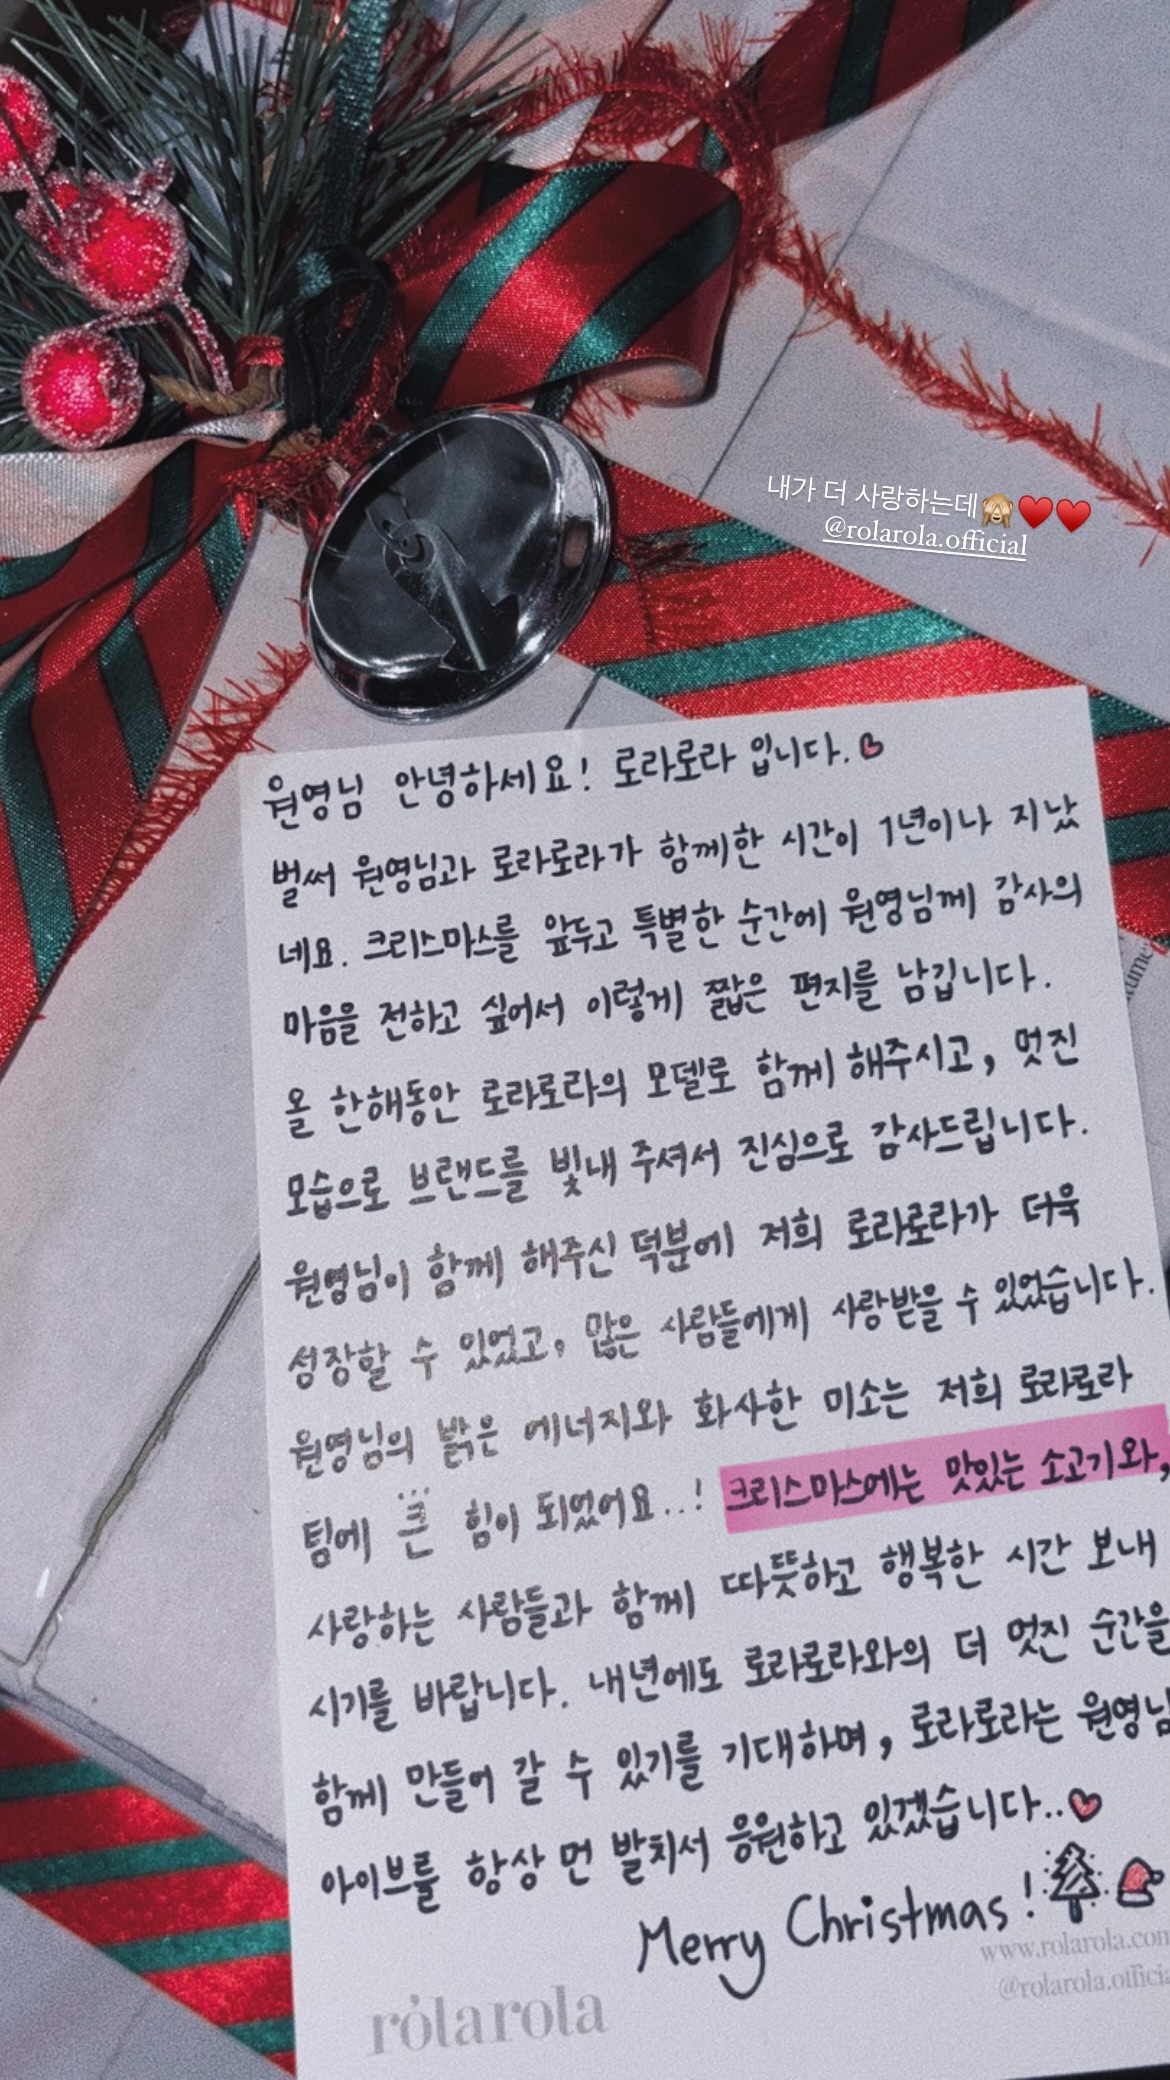 내가 더 사랑하는데🙈♥️♥️
@rolarola.official
원영님 안녕하세요! 로라로라 입니다.♡
벌써 원영님과 로라로라가 함께한 시간이 1년이나 지났
네요. 크리스마스를 앞두고 특별한 순간에 원영님께 감사의
마음을 전하고 싶어서 이렇게 짧은 편지를 남깁니다.
올 한해동안 로라로라의 모델로 함께 해주시고, 멋진
모습으로 브랜드를 빛내 주셔서 진심으로 감사드립니다.
원영님이 함께 해주신 덕분에 저희 로라로라가 더욱
성장할 수 있었고, 많은 사람들에게 사랑받을 수 있었습니다.
원영님의 밝은 에너지와 화사한 미소는 저희 로라로라
팀에 큰 힘이 되었어요..! 크리스마스에는 맛있는 소고기와,
사랑하는 사람들과 함께 따뜻하고 행복한 시간 보내
시기를 바랍니다. 내년에도 로라로라와의 더 멋진 순간을
함께 만들어 갈 수 있기를 기대하며, 로라로라는 원영님
아이브를 항상 먼 발치서 응원하고 있겠습니다..♡
Merry Christmas!
www.rolarola.com
@rolarola.officia
rolarola